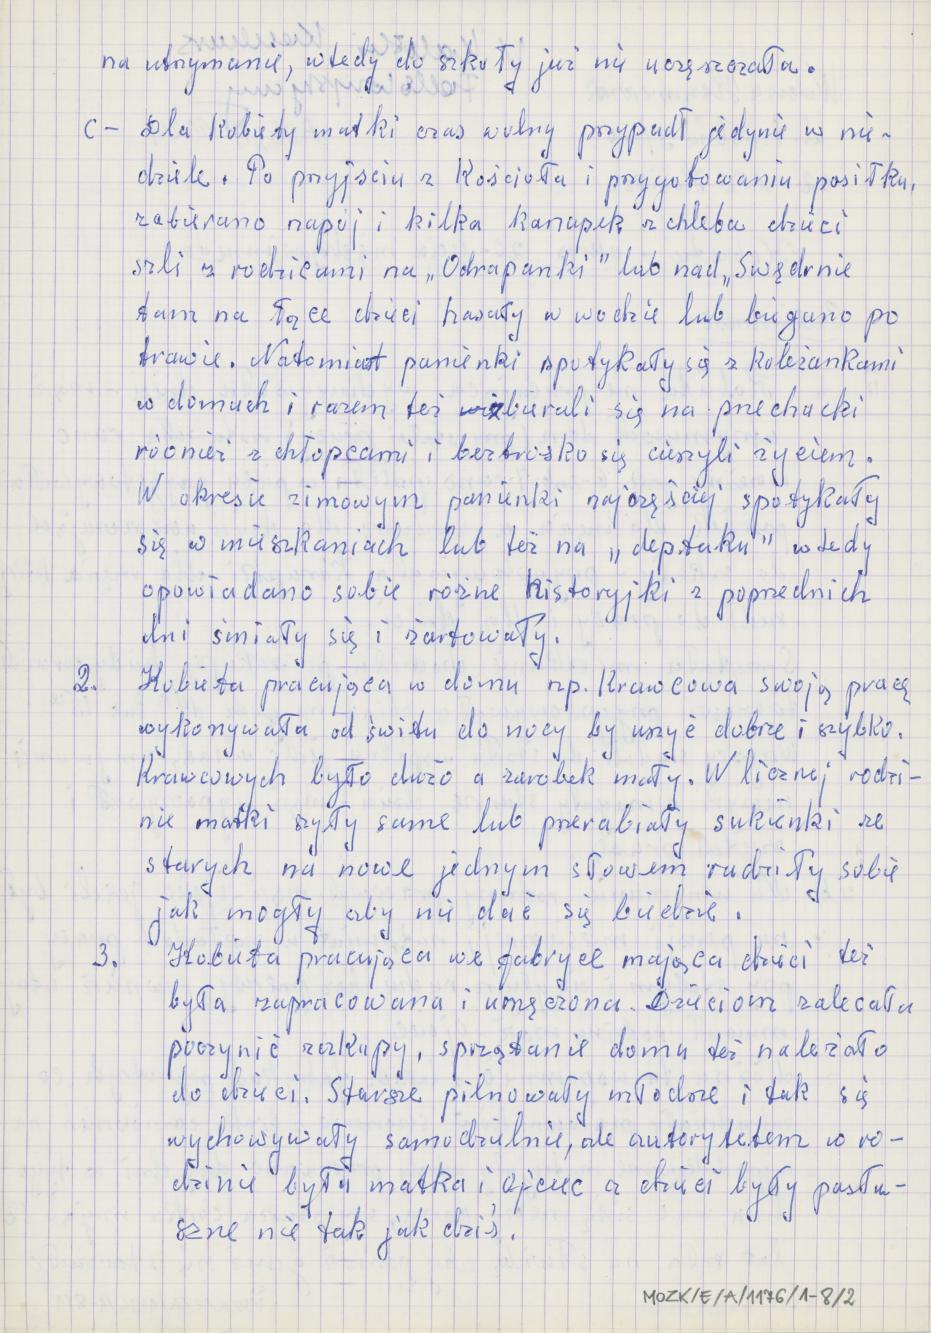 na utrzymanie, wtedy do szkoły już nie uczęszczała.
c – Dla kobiety matki czas wolny przypadł jedynie w nie-
dziele. Po przyjściu z Kościoła i przygotowaniu posiłku,
zabierano napój i kilka kanapek z chleba dzieci
szli z rodzicami na „Odrapanki" lub nad „Swędrnie
tam na łące dzieci hasały w wodzie lub biegano po
trawie. Natomiast panienki spotykały się z koleżankami
w domach i razem też wybierali się na przechacki
również z chłopcami i beztrosko się cieszyli życiem.
W okresie zimowym panienki najczęściej spotykały
się w mieszkaniach lub też na „deptaku" wtedy
opowiadano sobie różne historyjki z poprzednich
dni śmiały się i żartowały.
2. Kobieta pracująca w domu np. Krawcowa swoją pracę
wykonywała od świtu do nocy by uszyć dobrze i szybko.
Krawcowych było dużo a zarobek mały. W licznej rodzi-
nie matki szyły same lub przerabiały sukienki ze
starych na nowe jednym słowem radziły sobie
jak mogły aby nie dać się biedzie.
3. Kobieta pracująca we fabryce mająca dzieci też
była zapracowana i umęczona. Dzieciom zalecała
poczynić zakupy, sprzątanie domu też należało
do dzieci. Starsze pilnowały młodsze i tak się
wychowywały samodzielnie, ale autorytetem w ro-
dzinie była matka i ojciec a dzieci były posłu-
szne nie tak jak dziś.
MOZK/E/A/1176/1-8/2